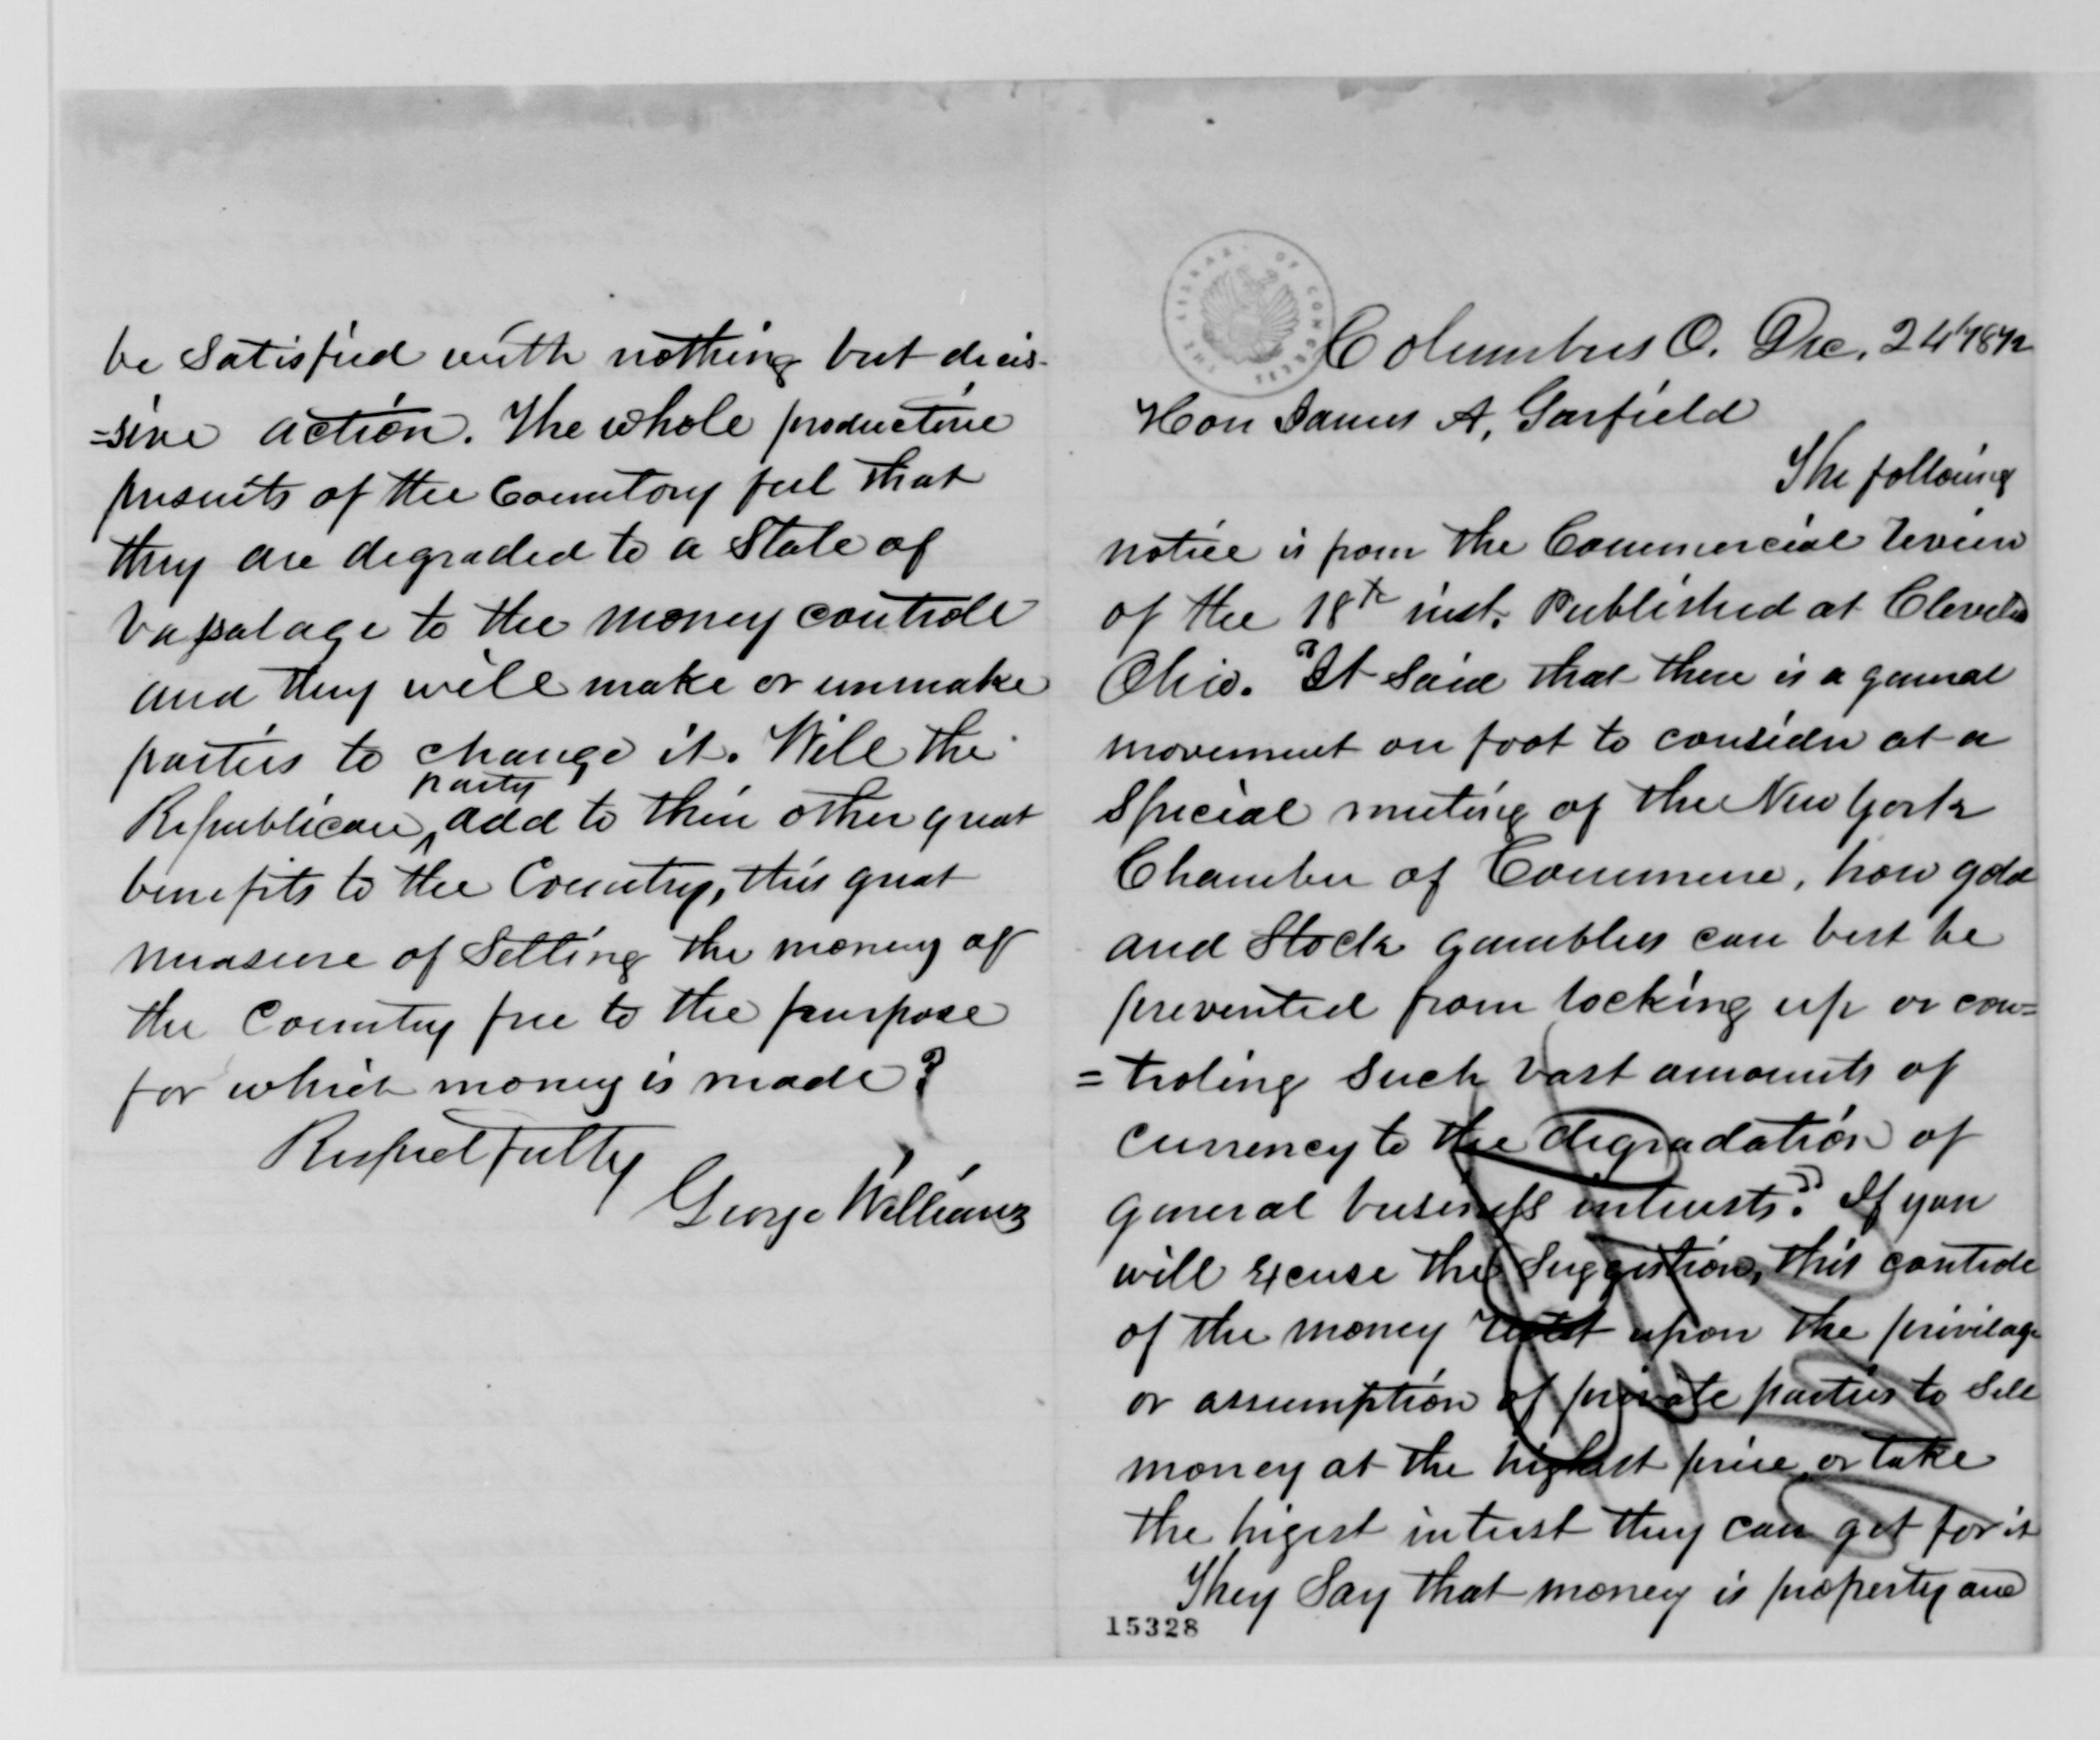 Columbus O. Dec. 24 1872
Hon James A, Garfield
The following
notice is from the Commercial review
of the 18th inst. Published at Cleveld
Ohio. "It said that there is a general
movement on foot to consider at a
Special meeting of the New York
Chamber of Commerce, how gold
and Stock gamblers can best be
prevented from locking up or con=
=troling such vast amounts of
currency to the degradation of
general business interests." If you
will excuse the suggestion, this controle
of the money rests upon the privilage
or assumption of private parties to sell
money at the highest price, or take
the higest interest they can get for it
They say that money is property and
15328
be satisfied with nothing but decis-
=sive action. The whole productive
pursuits of the Country feel that
they are degraded to a State of
Vassalage to the money controle
and they will make or unmake
parties to change it. Will the
party
Republican ^ add to their other great
benefits to the Country, this great
measure of Setting the money of
the Country free to the purpose
for which money is made?
Respectfully
George Williams
THE LIBRARY OF CONGRESS